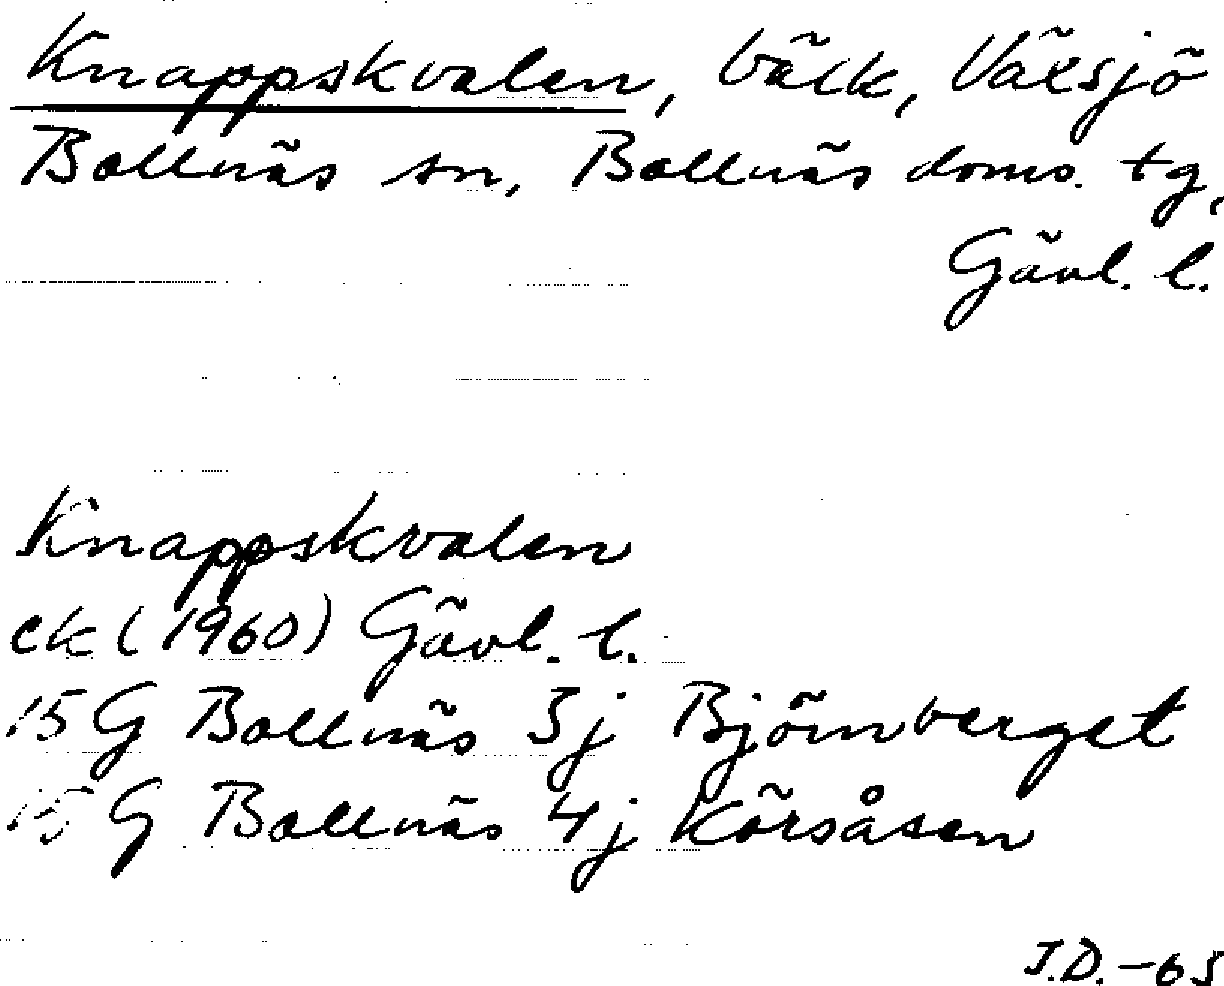 Knappskvalen, bäck, Växsjö
Bollnäs sn, Bollnäs doms. tg,
Gävl. l.
Knappskvalen
ek (1960) Gävl. l.
15 G Bollnäs 3j Björnberget
15 G Bollnäs 4j Körsåsen
J.D. -65